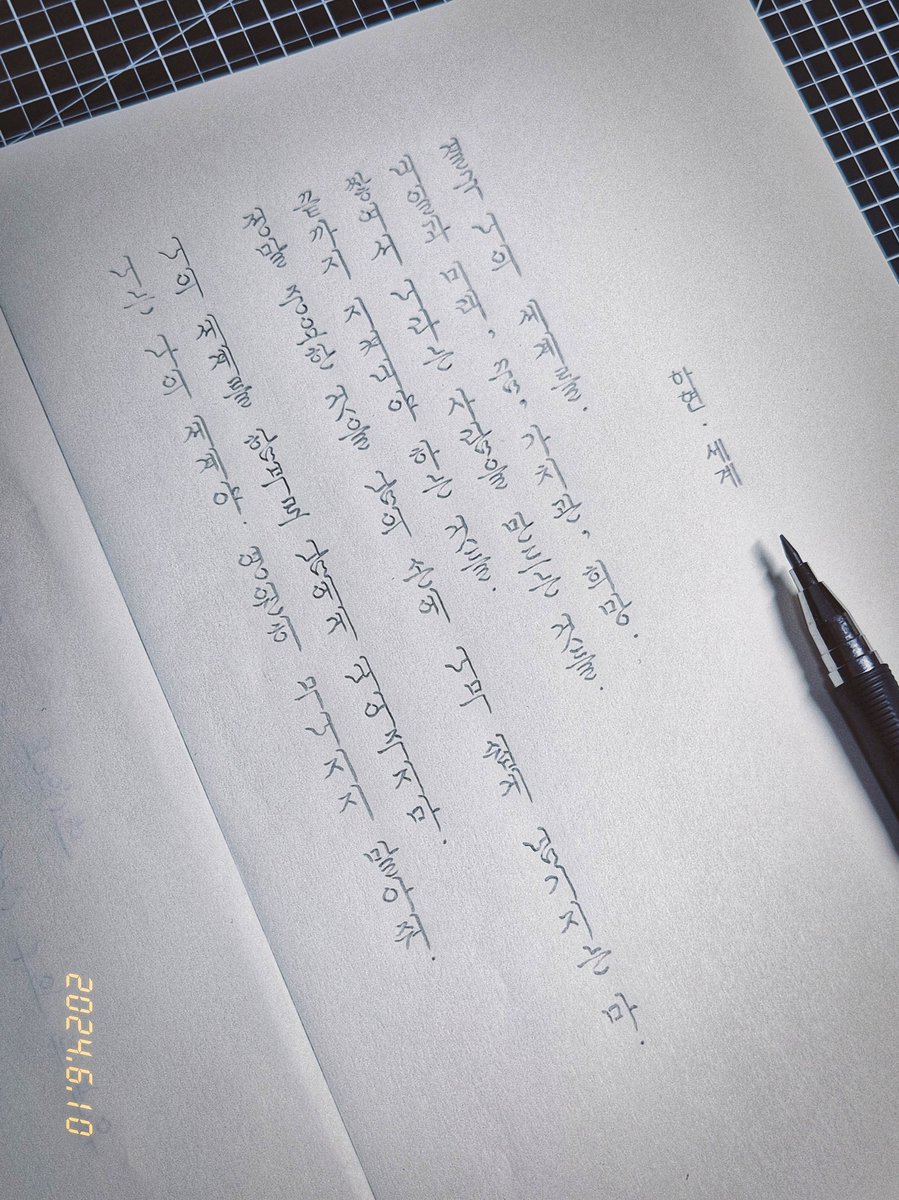 하현. 세계
결국 너의 세계를.
내일과 미래, 꿈, 가치관, 희망.
쌓여서 너라는 사람을 만드는 것들.
끝까지 지켜내야 하는 것들.
정말 중요한 것을 남의 손에 너무 쉽게 넘기지는 마.
너의 세계를 함부로 남에게 내어주지마.
너는 나의 세계야. 영원히 무너지지 말아줘.
2024.6.10